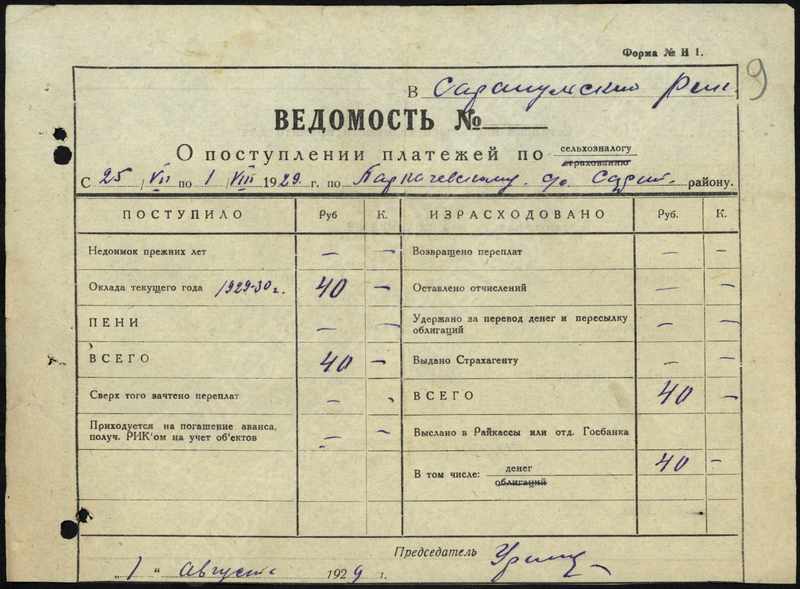 Форма № И 1.
9
В Сарапульский Рик.
ВЕДОМОСТЬ №
О поступлении платежей по сельхозналогу
страхованию
С 25/VII по 1/VIII 1929 г. по с/с. Сарап. району.
ПОСТУПИЛО Руб К. ИЗРАСХОДОВАНО Руб. К.
Недоимок прежних лет — — Возвращено переплат — —
Оклада текущего года 1929-30 г. 40 — Оставлено отчислений — —
ПЕНИ — — Удержано за перевод денег и пересылку облигаций — —
ВСЕГО 40 — Выдано Страхагенту — —
Сверх того зачтено переплат — ВСЕГО 40 —
Приходуется на погашение аванса, получ. РИК'ом на учет об'ектов — — Выслано в Райкассы или отд. Госбанка
В том числе: денег 40 —
облигаций
Председатель
„1" августа 1929 г.